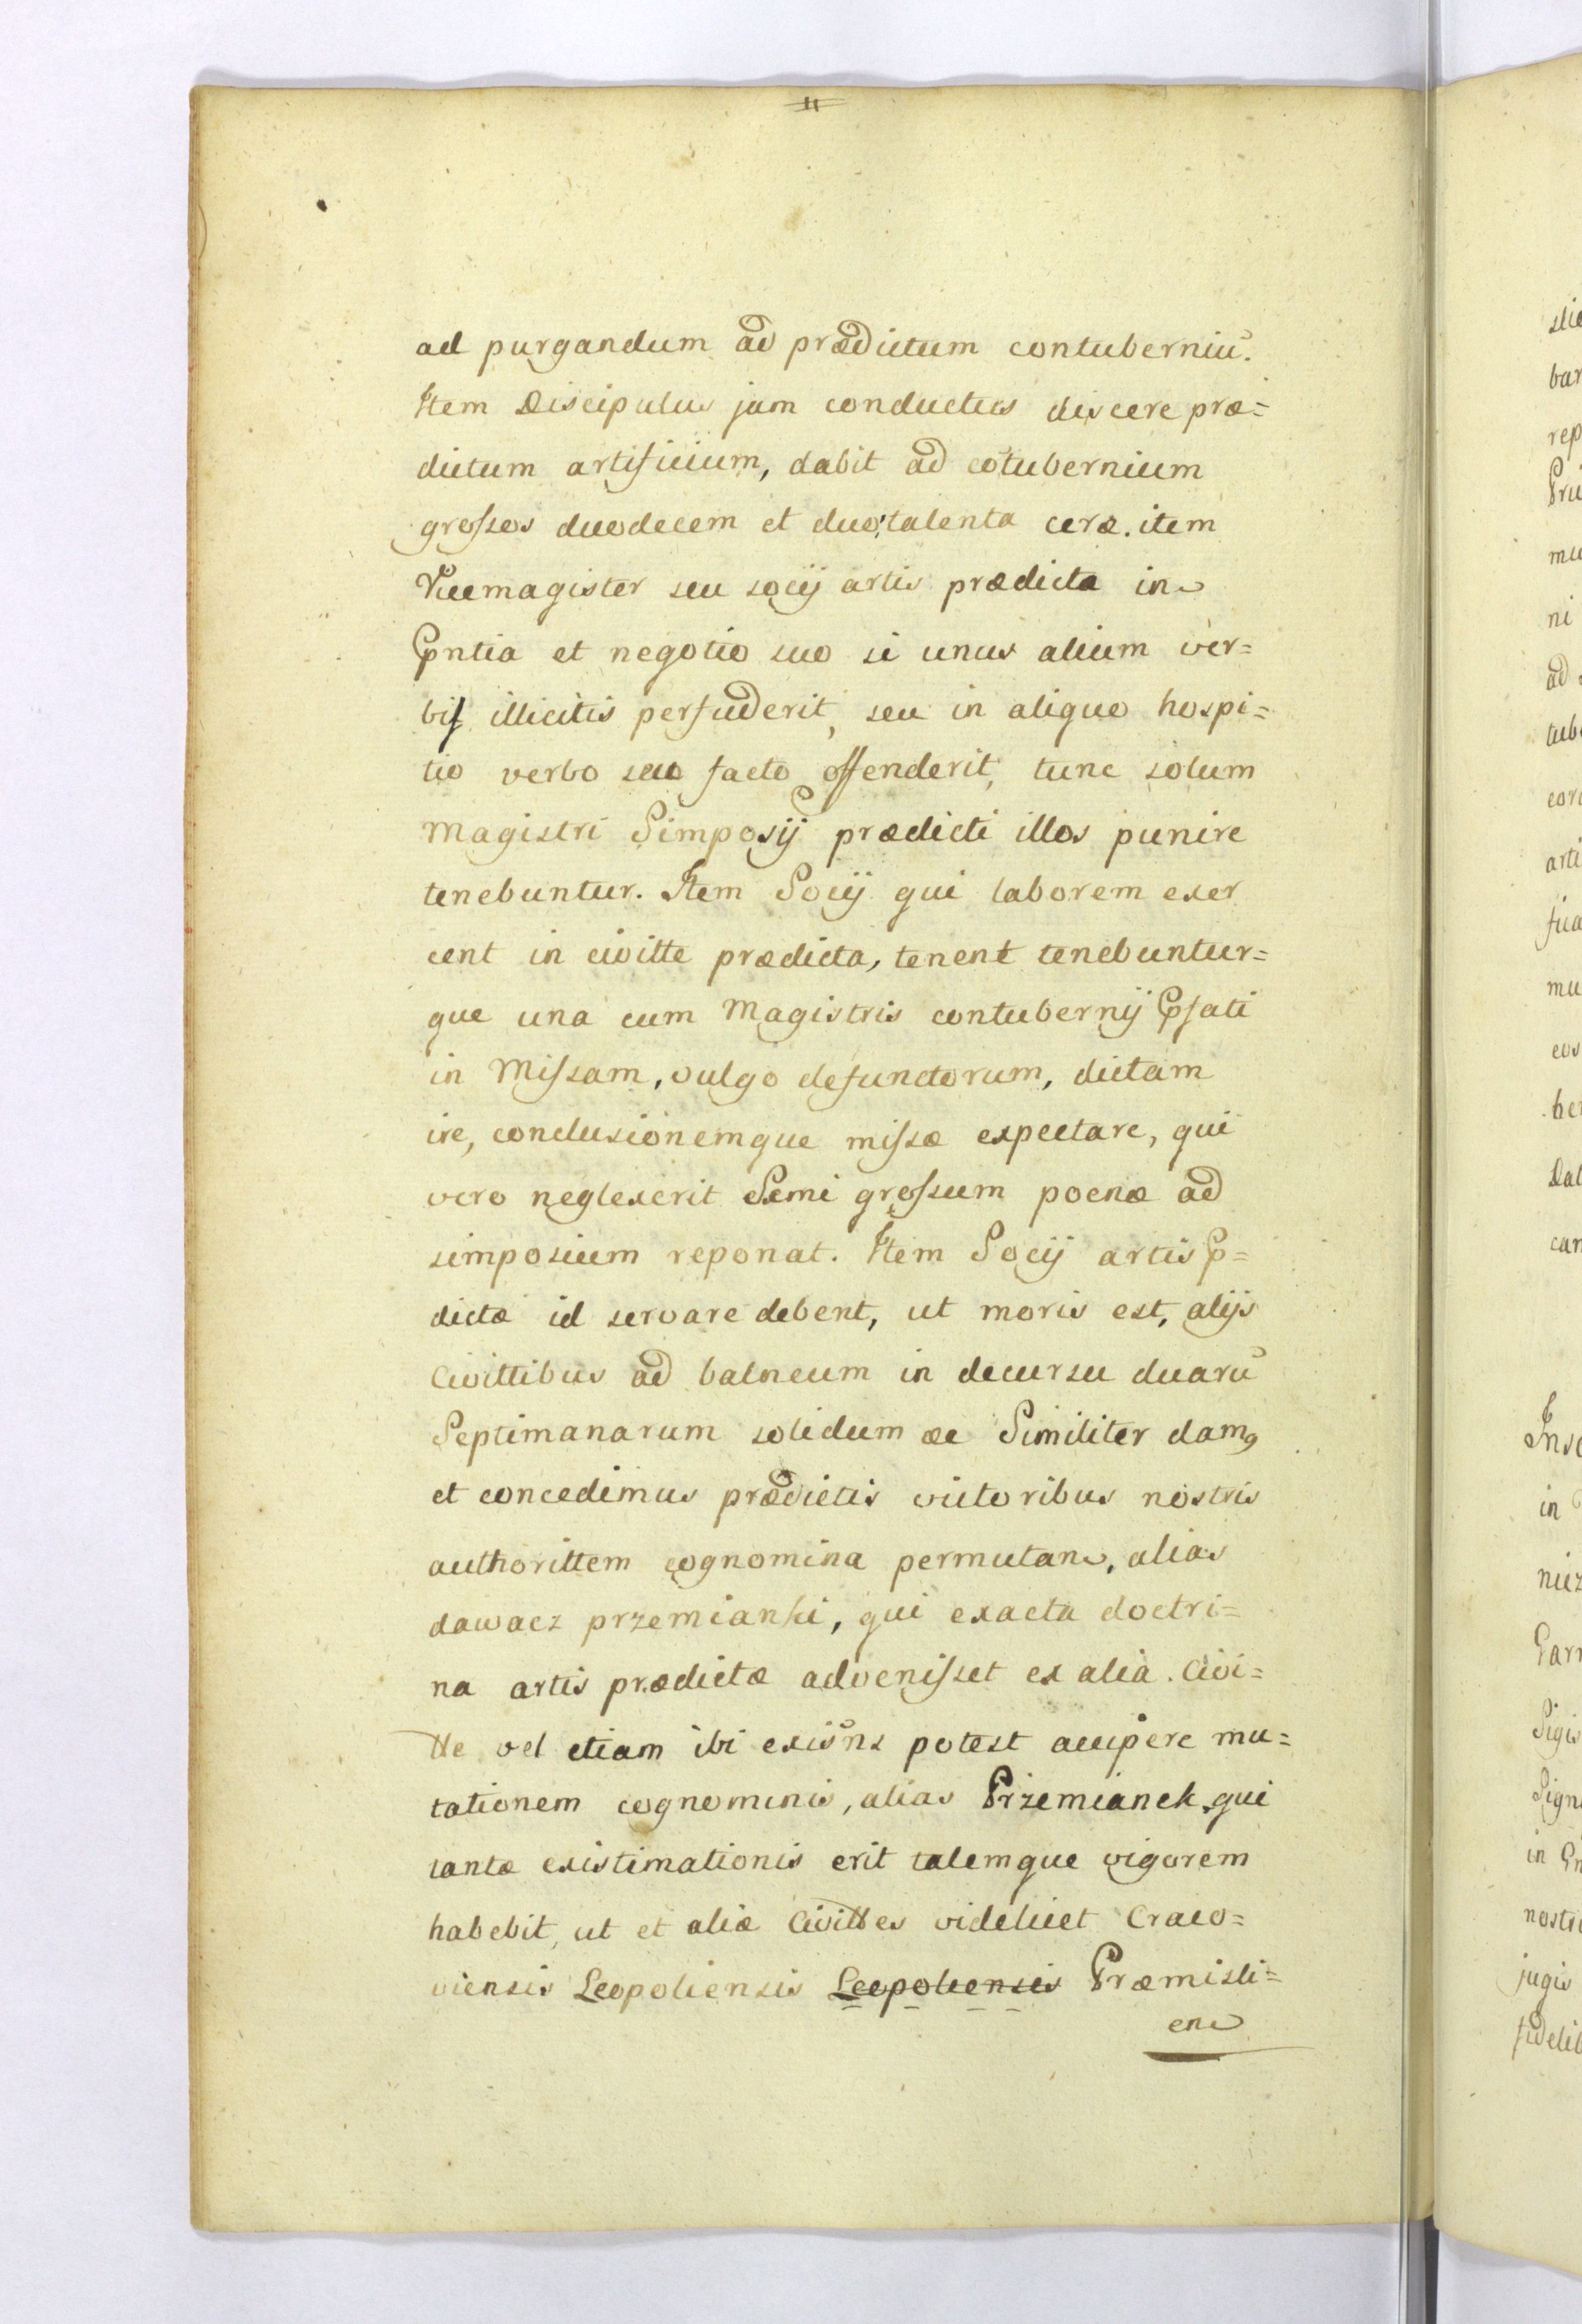 ad purgandum ad prædictum contuberniū.
Item Discipulus jam conductus discere præ=
dictum artificium, dabit ad cōtubernium
grossos duodecem et duo talenta ceræ. item
Vicemagister seu socij artis prædicta in
Pntia et negotio suo si unus alium ver=
bis illicitis persuderit, seu in aliquo hospi=
tio verbo seu facto offenderit, tunc solum
Magistri Simposij prædicti illos punire
tenebuntur. Item Socij qui laborem exer
cent in civitte prædicta, tenent tenebuntur=
que una cum Magistris contubernij Psati
in Missam, vulgo defunctorum, dictam
ire, conclusionemque missæ expectare, qui
vero neglexerit Semi grossum poenæ ad
simposium reponat. Item Socij artis P=
dictæ id servare debent, ut moris est, alijs
Civittibus ad balneum in decursu duarū
Septimanarum solidum ac Similiter dam9
et concedimus prædictis victoribus nostris
authorittem cognomina permutan, alias
dawacz przemianki, qui exacta doctri=
na artis prædictæ advenisset ex alia Civi=
tte vel etiam ibi exisns potest accipere mu=
tationem cognominis, alias Przemianek, qui
tantæ existimationis erit talemque vigorem
habebit, ut et aliæ Civittes videlicet Craco=
viensis Leopoliensis Leopoliensis Præmisli=
en